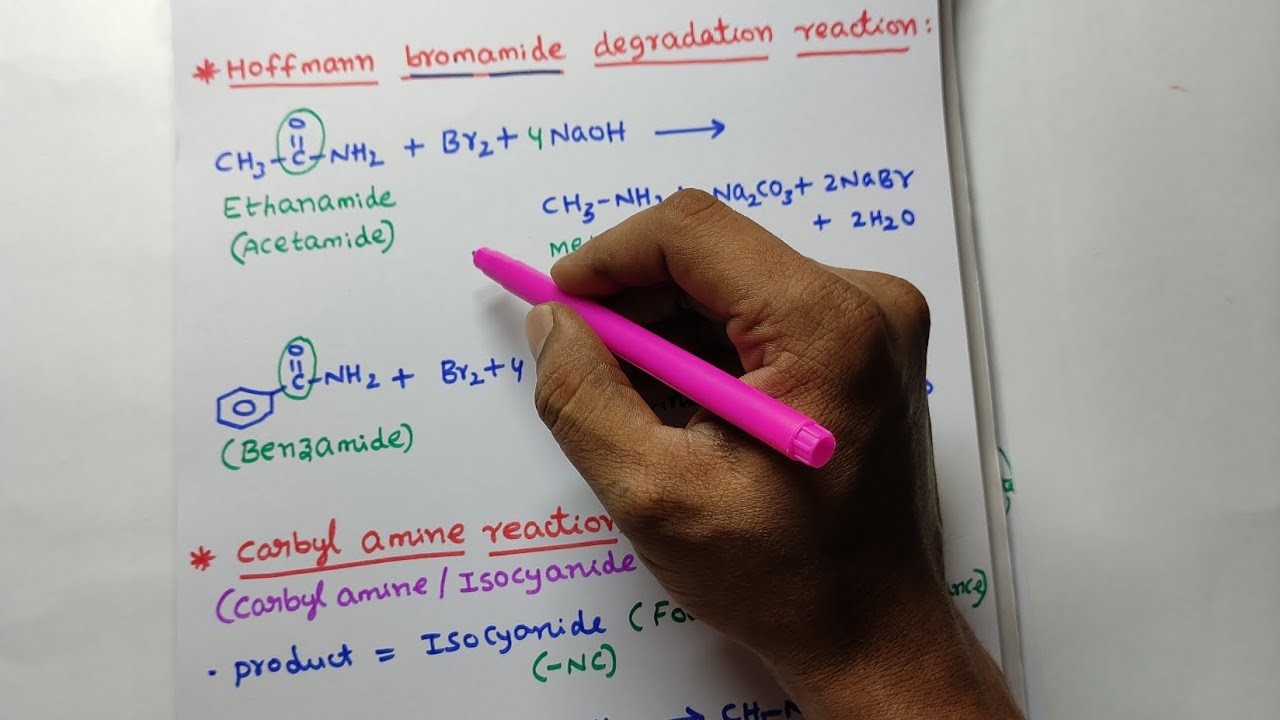 * Hoffmann bromamide degradation reaction:
O
||
CH3-C-NH2 + Br2 + 4NaOH →
Ethanamide
(Acetamide)
CH3-NH2 + Na2CO3 + 2NaBr
+ 2H2O
O
||
C-NH2 + Br2 + 4
(Benzamide)
* Carbyl amine reaction
(Carbyl amine / Isocyanide
• product = Isocyanide
(-NC)